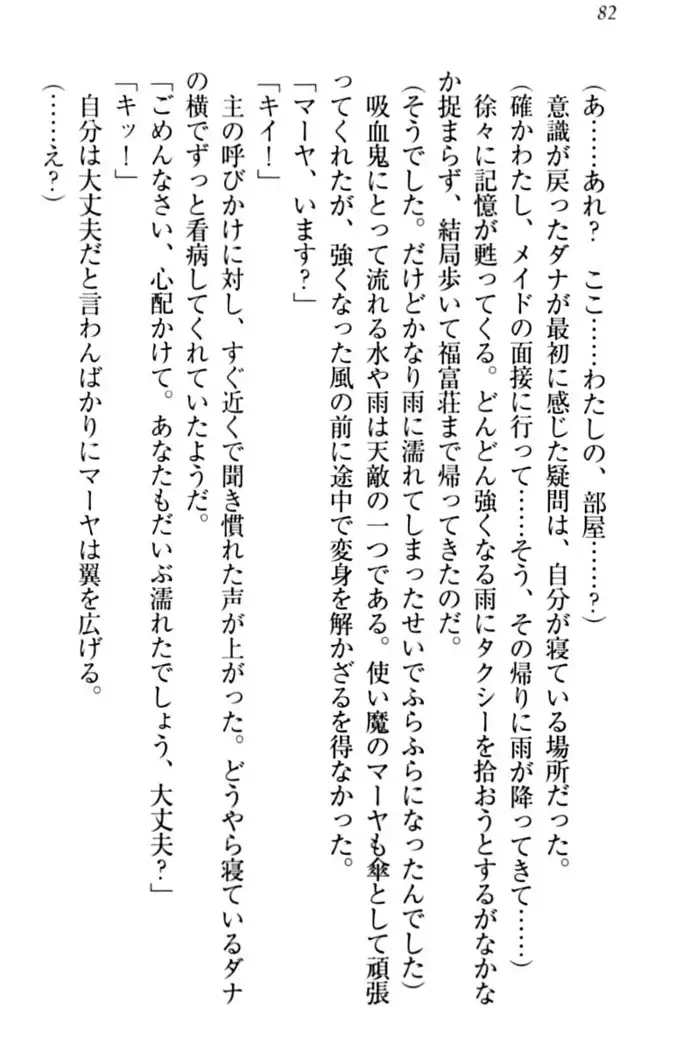 82
(あ……あれ？　ここ……わたしの、部屋……？)
　意識が戻ったダナが最初に感じた疑問は、自分が寝ている場所だった。
(確かわたし、メイドの面接に行って……そう、その帰りに雨が降ってきて……)
　徐々に記憶が甦ってくる。どんどん強くなる雨にタクシーを拾おうとするがなかな
か捉まらず、結局歩いて福富荘まで帰ってきたのだ。
(そうでした。だけどかなり雨に濡れてしまったせいでふらふらになったんでした)
　吸血鬼にとって流れる水や雨は天敵の一つである。使い魔のマーヤも傘として頑張
ってくれたが、強くなった風の前に途中で変身を解かざるを得なかった。
「マーヤ、います？」
「キイ！」
　主の呼びかけに対し、すぐ近くで聞き慣れた声が上がった。どうやら寝ているダナ
の横でずっと看病してくれていたようだ。
「ごめんなさい、心配かけて。あなたもだいぶ濡れたでしょう、大丈夫？」
「キッ！」
　自分は大丈夫だと言わんばかりにマーヤは翼を広げる。
(……え？)